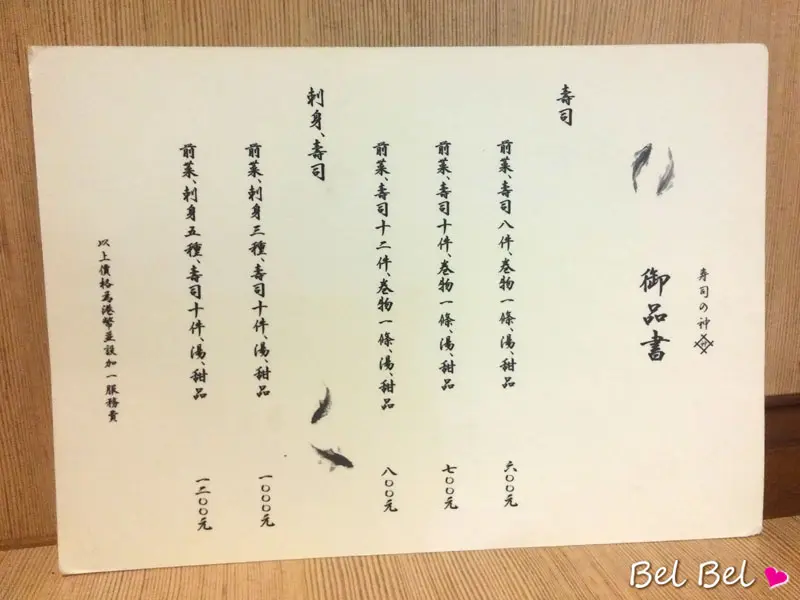 寿司の神
御品書
壽司
前菜、壽司八件、卷物一條、湯、甜品 六〇〇元
前菜、壽司十件、卷物一條、湯、甜品 七〇〇元
前菜、壽司十二件、卷物一條、湯、甜品 八〇〇元
刺身、壽司
前菜、刺身三種、壽司十件、湯、甜品 一〇〇〇元
前菜、刺身五種、壽司十件、湯、甜品 一二〇〇元
以上價格為港幣並設加一服務費
Bel Bel